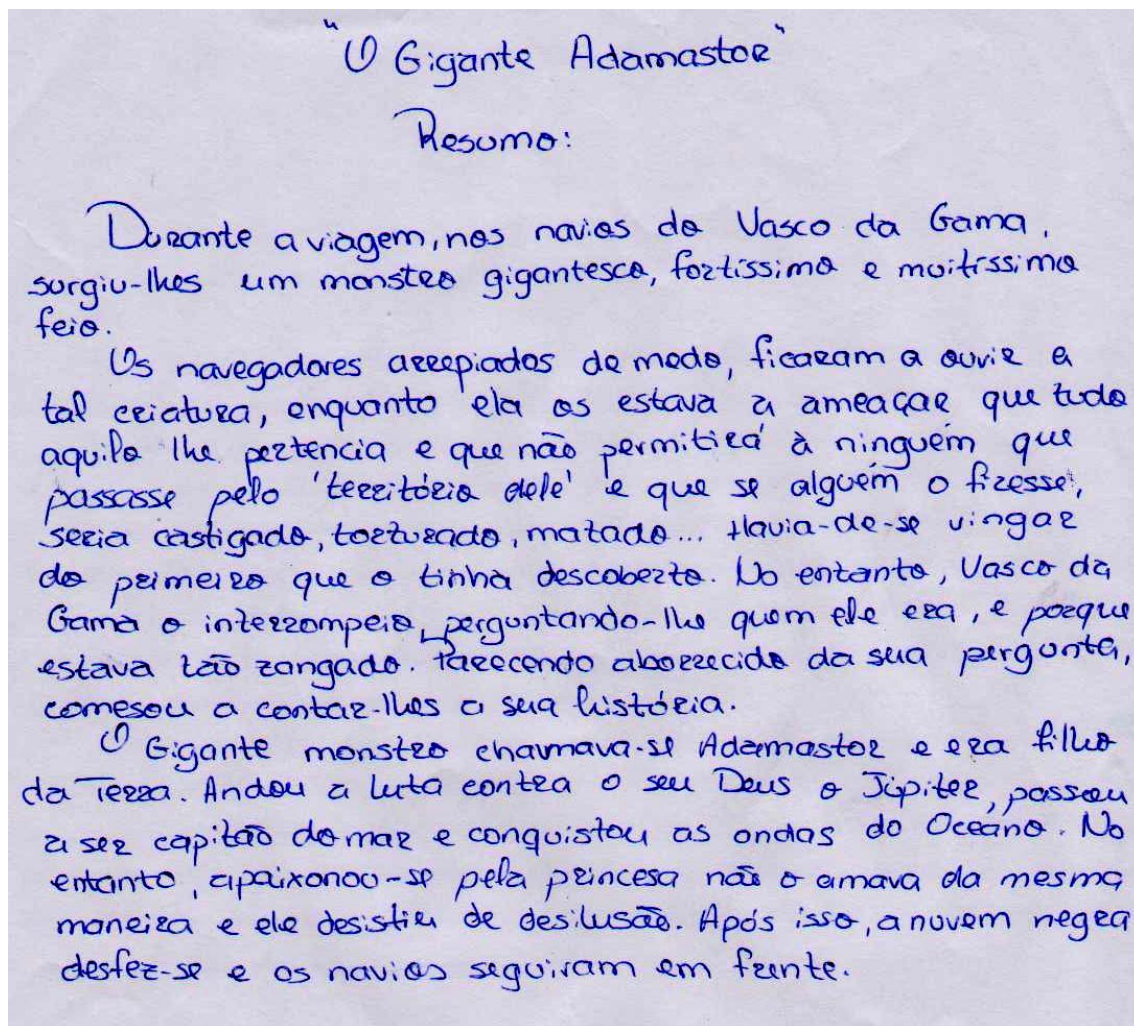 "O Gigante Adamastor"
Resumo:
Durante a viagem, nos navios de Vasco da Gama,
surgiu-lhes um monstro gigantesco, fortíssimo e muitíssimo
feio.
Os navegadores arrepiados de medo, ficaram a ouvir a
tal criatura, enquanto ela os estava a ameaçar que tudo
aquilo lhe pertencia e que não permitirá à ninguém que
passasse pelo 'território dele' e que se alguém o fizesse,
seria castigado, torturado, matado... Havia-de-se vingar
do primeiro que o tinha descoberto. No entanto, Vasco da
Gama o interrompeio, perguntando-lhe quem ele era, e porque
estava tão zangado. Parecendo aborrecido da sua pergunta,
comesou a contar-lhes a sua história.
O Gigante monstro chavmava-se Adamastor e era filho
da Terra. Andou a luta contra o seu Deus o Júpiter, passou
a ser capitão do mar e conquistou as ondas do Oceano. No
entanto, apaixonou-se pela princesa não o amava da mesma
maneira e ele desistiu de desilusão. Após isso, a nuvem negra
desfez-se e os navios seguiram em frente.